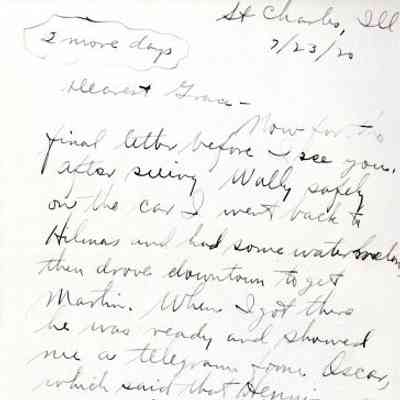 St Charles, Ill
2 more days
7/23/20
Dearest Grace -
Now for the
final letter before I see you.
After seeing Wally safely
on the car I went back to
Hilmas and had some watermelon
then drove downtown to get
Martin. When I got there
he was ready and showed
me a telegram from Oscar,
which said that Henni-